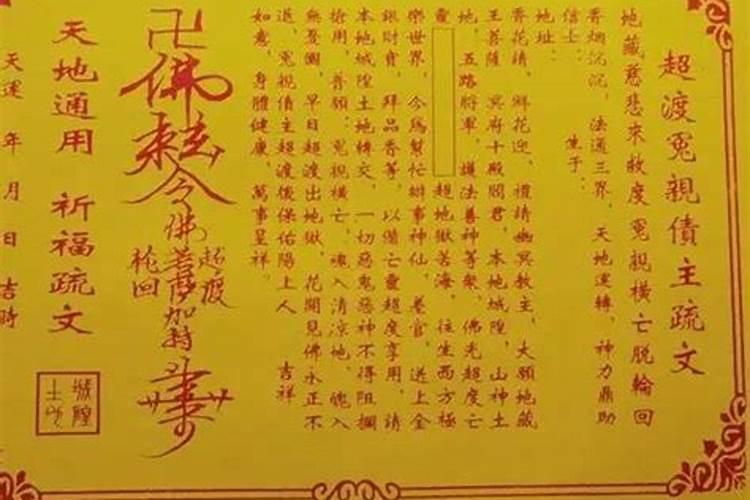 超渡冤親債主疏文
地藏慈悲來救度冤親橫亡脫輪回
香烟沉沉，法通三界，天地運轉，神力鼎助
信士： 生于：
地址：
香花請，鮮花迎，禮請幽冥教主，大願地藏
王菩薩 冥府十殿閻君，本地城隍，山神土
地，五路將軍，護法善神等衆，佛光超度亡
靈 超地獄苦海，往生西方極
樂世界，今爲幫忙辦事神仙，差官，送上金
銀財寶，拜品香等，以備亡靈超度享用，請
本地城隍土地轉交，一切惡鬼惡神不得阻攔
搶用，普願：冤親橫亡，魂入清凉地，魄入
無憂國，早日超渡出地獄，花開見佛永正不
退，冤親債主超渡後保佑陽上人 吉祥
如意，身體健康，萬事呈祥。
卍
佛
來
令
佛
超渡
菩薩
輪回
加持
天地通用 祈福疏文
城隍
土地
天運 年 月 日 吉時